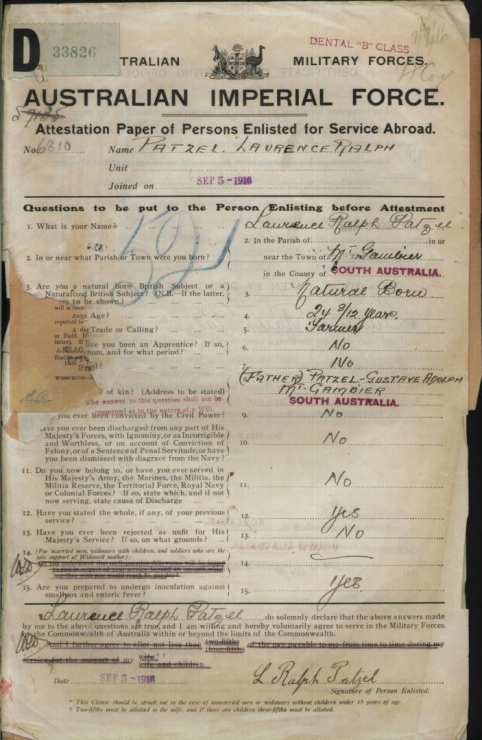 D 33826
DENTAL "B" CLASS
TRALIAN MILITARY FORCES.
AUSTRALIAN IMPERIAL FORCE.
Attestation Paper of Persons Enlisted for Service Abroad.
No. 6810 Name PATZEL LAURENCE RALPH
Unit
Joined on SEP 5-1916
Questions to be put to the Person Enlisting before Attestment
1. What is your Name? Laurence Ralph Patzel
2. In or near what Parish or Town were you born? 2. In the Parish of in or
near the Town of Mt. Gambier
in the County of SOUTH AUSTRALIA.
3. Are you a natural born British Subject or a
Naturalized British Subject? (N.B.—If the latter,
to be shown) 3. Natural Born
Age? 4. 24 9/12 years.
Trade or Calling? 5. Farmer
you been an Apprentice? If so, 6. No
om, and for what period? No
of kin? (Address to be stated) (FATHER) PATZEL-GUSTAVE ADOLPH
MT. GAMBIER
The answer to this question shall not be SOUTH AUSTRALIA.
construed as in the nature of a Will.
you ever been convicted by the Civil Power? 9. No
ave you ever been discharged from any part of His
Majesty's Forces, with Ignominy, or as Incorrigible
and Worthless, or on account of Conviction of 10. No
Felony, or of a Sentence of Penal Servitude, or have
you been dismissed with disgrace from the Navy?
11. Do you now belong to, or have you ever served in
His Majesty's Army, the Marines, the Militia, the
Militia Reserve, the Territorial Force, Royal Navy 11. No
or Colonial Forces? If so, state which, and if not
now serving, state cause of Discharge
12. Have you stated the whole, if any, of your previous
service? 12. Yes
13. Have you ever been rejected as unfit for His
Majesty's Service? If so, on what grounds? 13. No
14. (For married men, widowers with children, and soldiers who are the
sole support of Widowed mother)—
14.
15. Are you prepared to undergo inoculation against
smallpox and enteric fever? 15. Yes.
I, Laurence Ralph Patzel do solemnly declare that the above answers made
by me to the above questions are true, and I am willing and hereby voluntarily agree to serve in the Military Forces
of the Commonwealth of Australia within or beyond the limits of the Commonwealth.
And I further agree to allot not less than two-fifths three-fifths of the pay payable to me from time to time during my
service for the support of my wife
wife and children
Date SEP 5-1916 L Ralph Patzel
Signature of Person Enlisted.
* This Clause should be struck out in the case of unmarried men or widowers without children under 18 years of age.
† Two-fifths must be allotted to the wife, and if there are children three-fifths must be allotted.